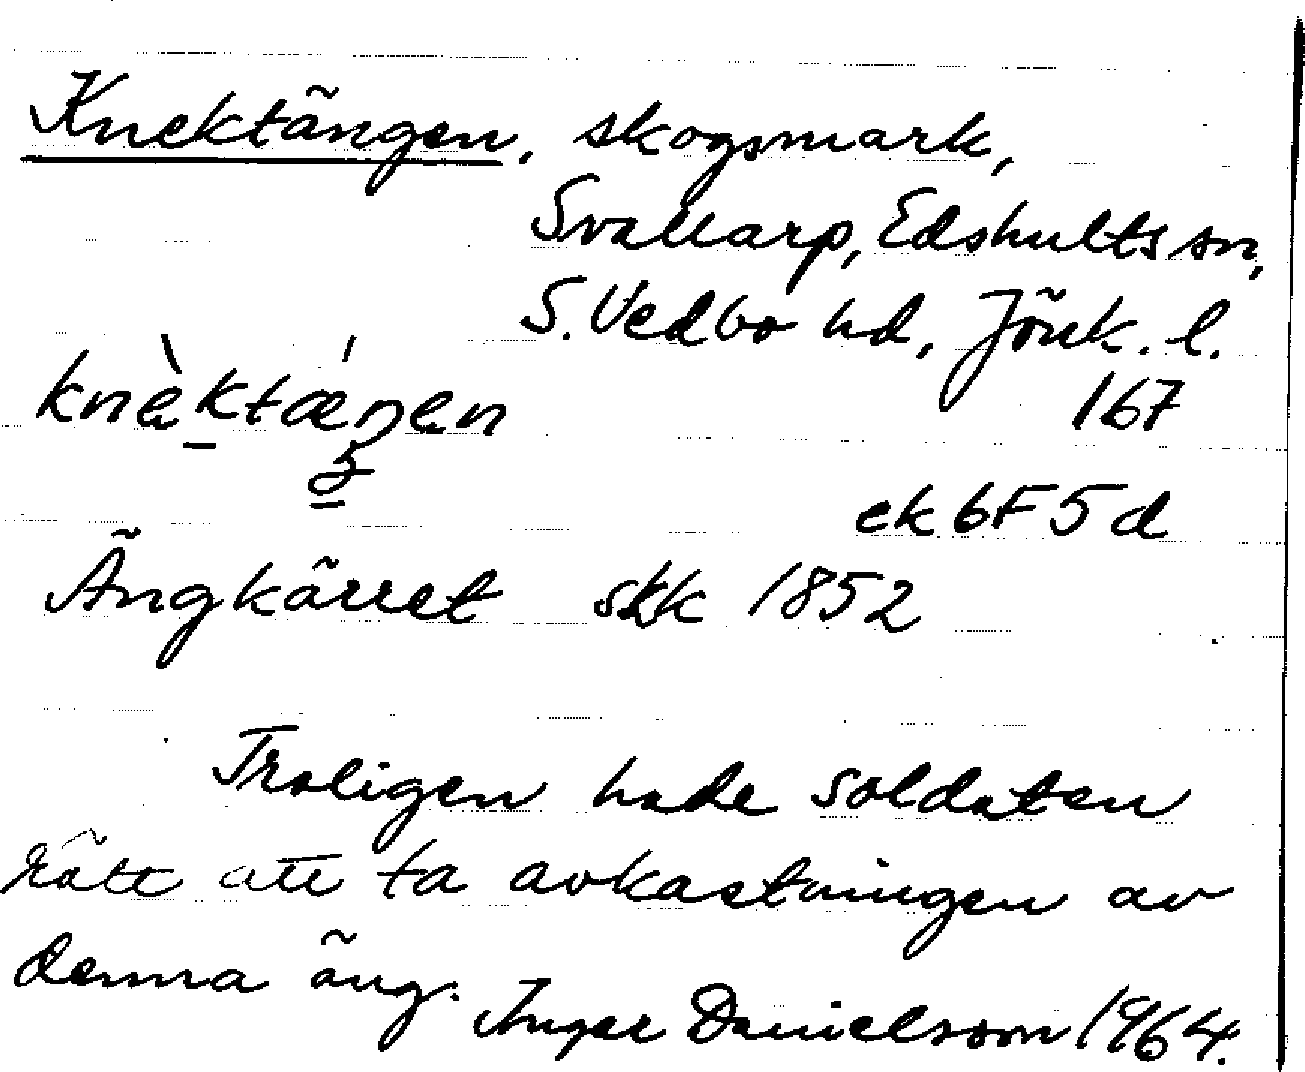 Knektängen, skogsmark,
Svallarp, Edshults sn,
S. Vedbo hd, Jönk. l.
knèktæŋen 167
ek 6F5d
Ängkärret skk 1852
Troligen hade soldaten
rätt att ta avkastningen av
denna äng.
Inger Danielsson 1964.